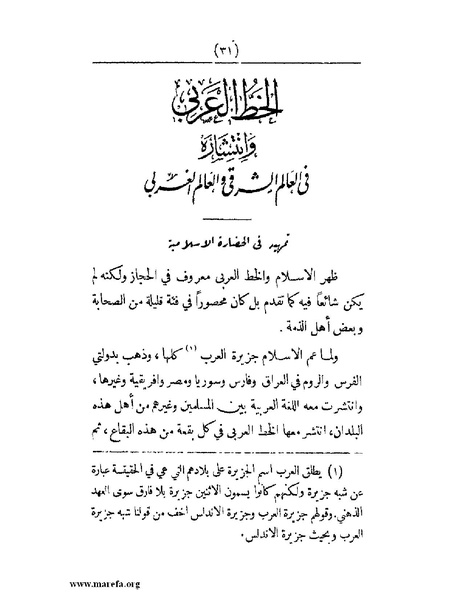 (٣١)
الخَطُّ العَرَبي
وَانتِشَارُه
في العالم الشرقي والعالم الغربي
تمهيد في الحضارة الاسلامية
ظهر الاسلام والخط العربى معروف في الحجاز ولكنه لم
يكن شائعاً فيه كما تقدم بل كان محصوراً في فئة قليلة من الصحابة
وبعض أهل الذمة .
ولما عم الاسلام جزيرة العرب (١) كلها ، وذهب بدولتي
الفرس والروم في العراق وفارس وسوريا ومصر وافريقية وغيرها ،
وانتشرت معه اللغة العربية بين المسلمين وغيرهم من أهل هذه
البلدان، انتشر معها الخط العربى في كل بقعة من هذه البقاع ، ثم
(١) يطلق العرب اسم الجزيرة على بلادهم التي هي في الحقيقة عبارة
عن شبه جزيرة ولكنهم كانوا يسمون الاثنين جزيرة بلا فارق سوى العهد
الذهني.وقولهم جزيرة العرب وجزيرة الاندلس اخف من قولنا شبه جزيرة
العرب وبحيث جزيرة الاندلس.
www.marefa.org